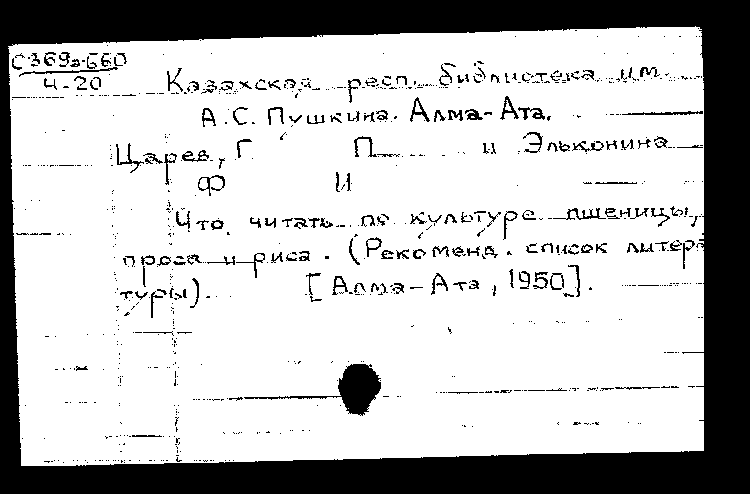 С369а-660
Ч-20
Казахская респ. библиотека им.
А.С. Пушкина. Алма-Ата.
Царев, Г П и Эльконина
Ф И
Что читать по культуре пшеницы,
проса и риса. (Рекоменд. список литера
туры). [Алма-Ата, 1950].